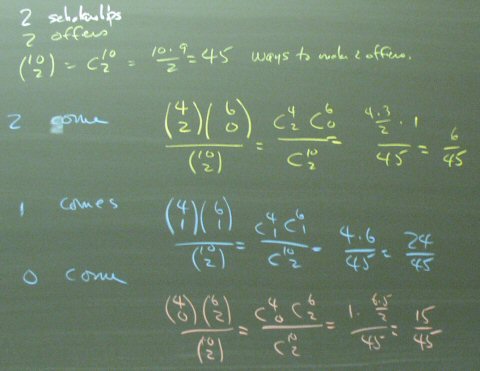 2 scholarships
2 offers
(10 2) = C 10 2 = 10·9 / 2 = 45 ways to make 2 offers.
2 come (4 2)(6 0) / (10 2) = C 4 2 C 6 0 / C 10 2 = 4·3/2 · 1 / 45 = 6/45
1 comes (4 1)(6 1) / (10 2) = C 4 1 C 6 1 / C 10 2 = 4·6 / 45 = 24/45
0 come (4 0)(6 2) / (10 2) = C 4 0 C 6 2 / C 10 2 = 1 · 6·5/2 / 45 = 15/45